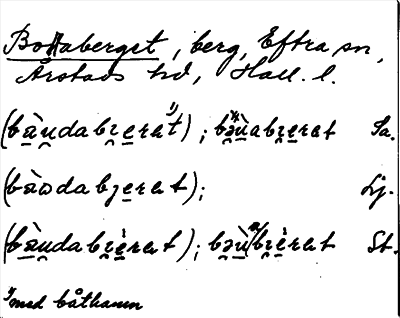 Bottaberget, berg, Eftra sn,
Årstads hd, Hall. l.
(bàu̯dabʒeret¹⁾); bəu̯àbʒeret Sa.
(bàodabʒeret); Lj.
(bàu̯dabʒèret); bəu̯àbʒèret St.
¹⁾ med båthamn